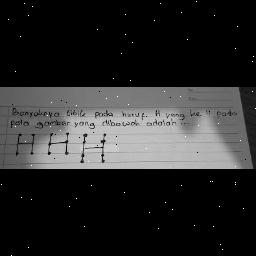 Banyaknya titik pada huruf H yang ke 11 pada
pola gambar yang dibawah adalah ....
H H H